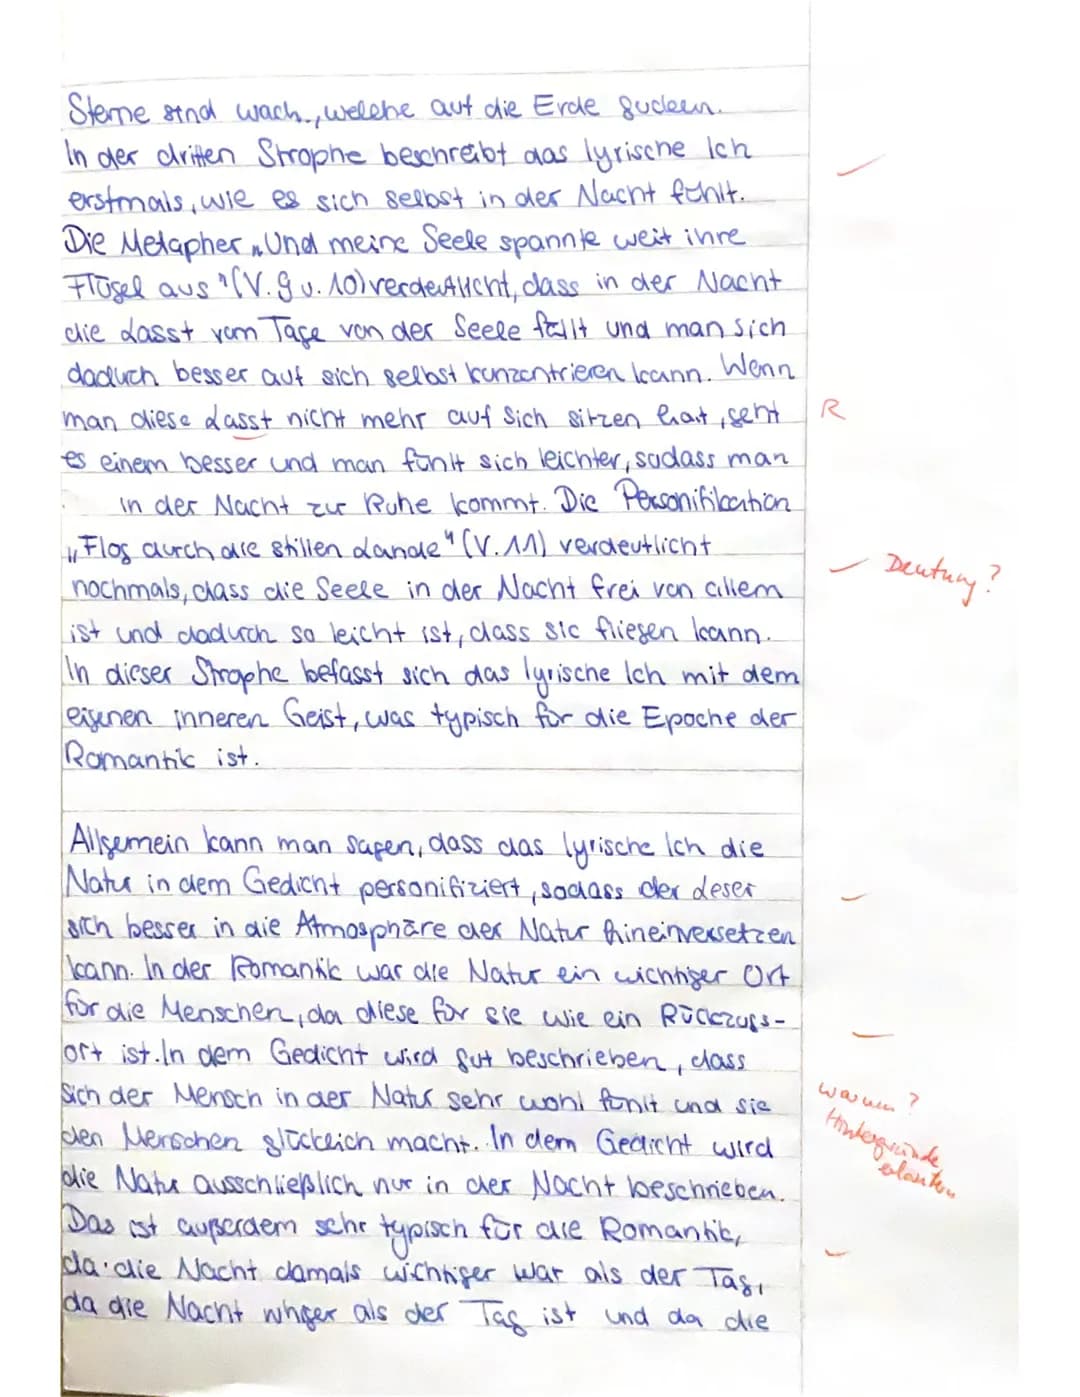 Sterne sind wach, welche auf die Erde gucken.
In der dritten Strophe beschreibt das lyrische Ich
erstmals, wie es sich selbst in der Nacht fühlt.
Die Metapher „Und meine Seele spannte weit ihre
Flügel aus" (V. 9 u. 10) verdeutlicht, dass in der Nacht
die Lasst vom Tage von der Seele fällt und man sich
daduch besser auf sich selbst konzentrieren kann. Wenn
man diese Lasst nicht mehr auf sich sitzen hat, geht R
es einem besser und man fühlt sich leichter, sodass man
in der Nacht zur Ruhe kommt. Die Personifikation
„Flog durch die stillen Lande" (V. 11) verdeutlicht Deutung?
nochmals, dass die Seele in der Nacht frei von allem
ist und dadurch so leicht ist, dass sie fliegen kann.
In dieser Strophe befasst sich das lyrische Ich mit dem
eigenen inneren Geist, was typisch für die Epoche der
Romantik ist.
Allgemein kann man sagen, dass das lyrische Ich die
Natur in dem Gedicht personifiziert, sodass der Leser
sich besser in die Atmosphäre der Natur hineinversetzen
kann. In der Romantik war die Natur ein wichtiger Ort
für die Menschen, da diese für sie wie ein Rückzugs-
ort ist. In dem Gedicht wird gut beschrieben, dass
sich der Mensch in der Natur sehr wohl fühlt und sie warum?
den Menschen glücklich macht. In dem Gedicht wird Hintergründe
die Natur ausschließlich nur in der Nacht beschrieben. erläutern
Das ist außerdem sehr typisch für die Romantik,
da die Nacht damals wichtiger war als der Tag,
da die Nacht als der Tag ist und da die